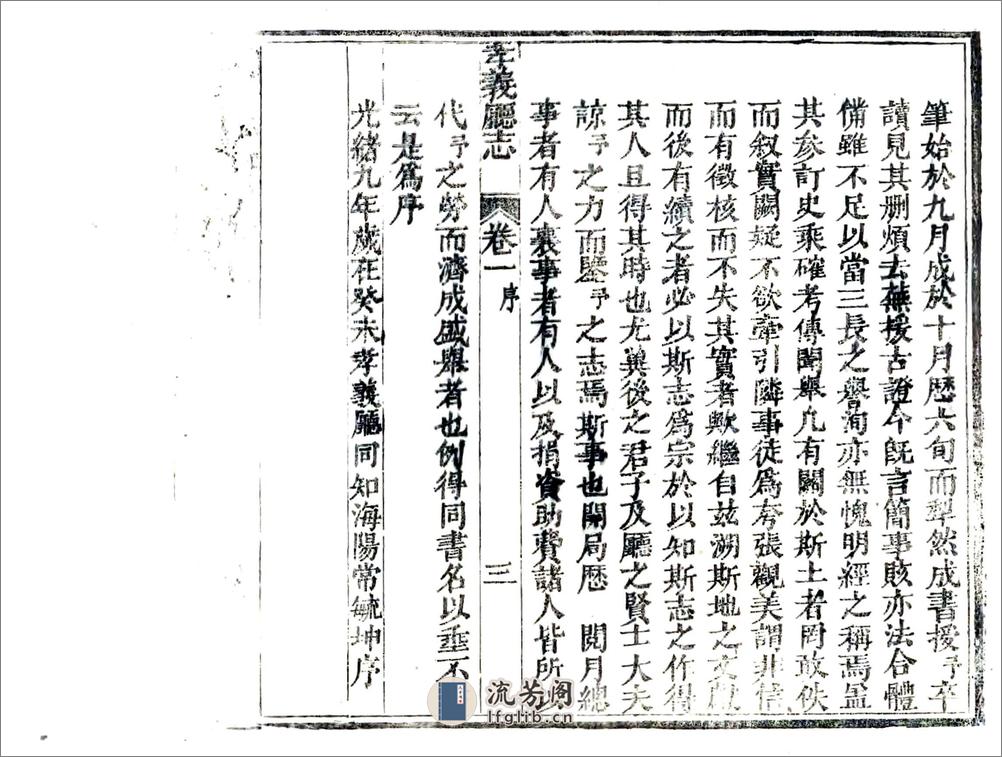 筆始於九月成於十月歷六旬而犁然成書授予卒
讀見其刪煩去蕪援古證今既言簡事賅亦法合體
備雖不足以當三長之譽洵亦無愧明經之稱焉蓋
其參訂史乘確考傳聞舉凡有關於斯土者罔敢佚
而敘實闕疑不欲牽引隣事徒爲夸張觀美謂非信
而有徵核而不失其實者歟繼自玆溯斯地之文獻
而後有續之者必以斯志爲宗於以知斯志之作得
其人且得其時也尤兾後之君子及廳之賢士大夫
諒予之力而鑒予之志焉斯事也開局歷 閱月總
事者有人襄事者有人以及捐資助費諸人皆所以
孝義廳志 卷一 序 三
代予之勞而濟成盛舉者也例得同書名以垂不
云是爲序
光緒九年歲在癸未孝義廳同知海陽常毓坤序
流芳阁
lfglib.cn